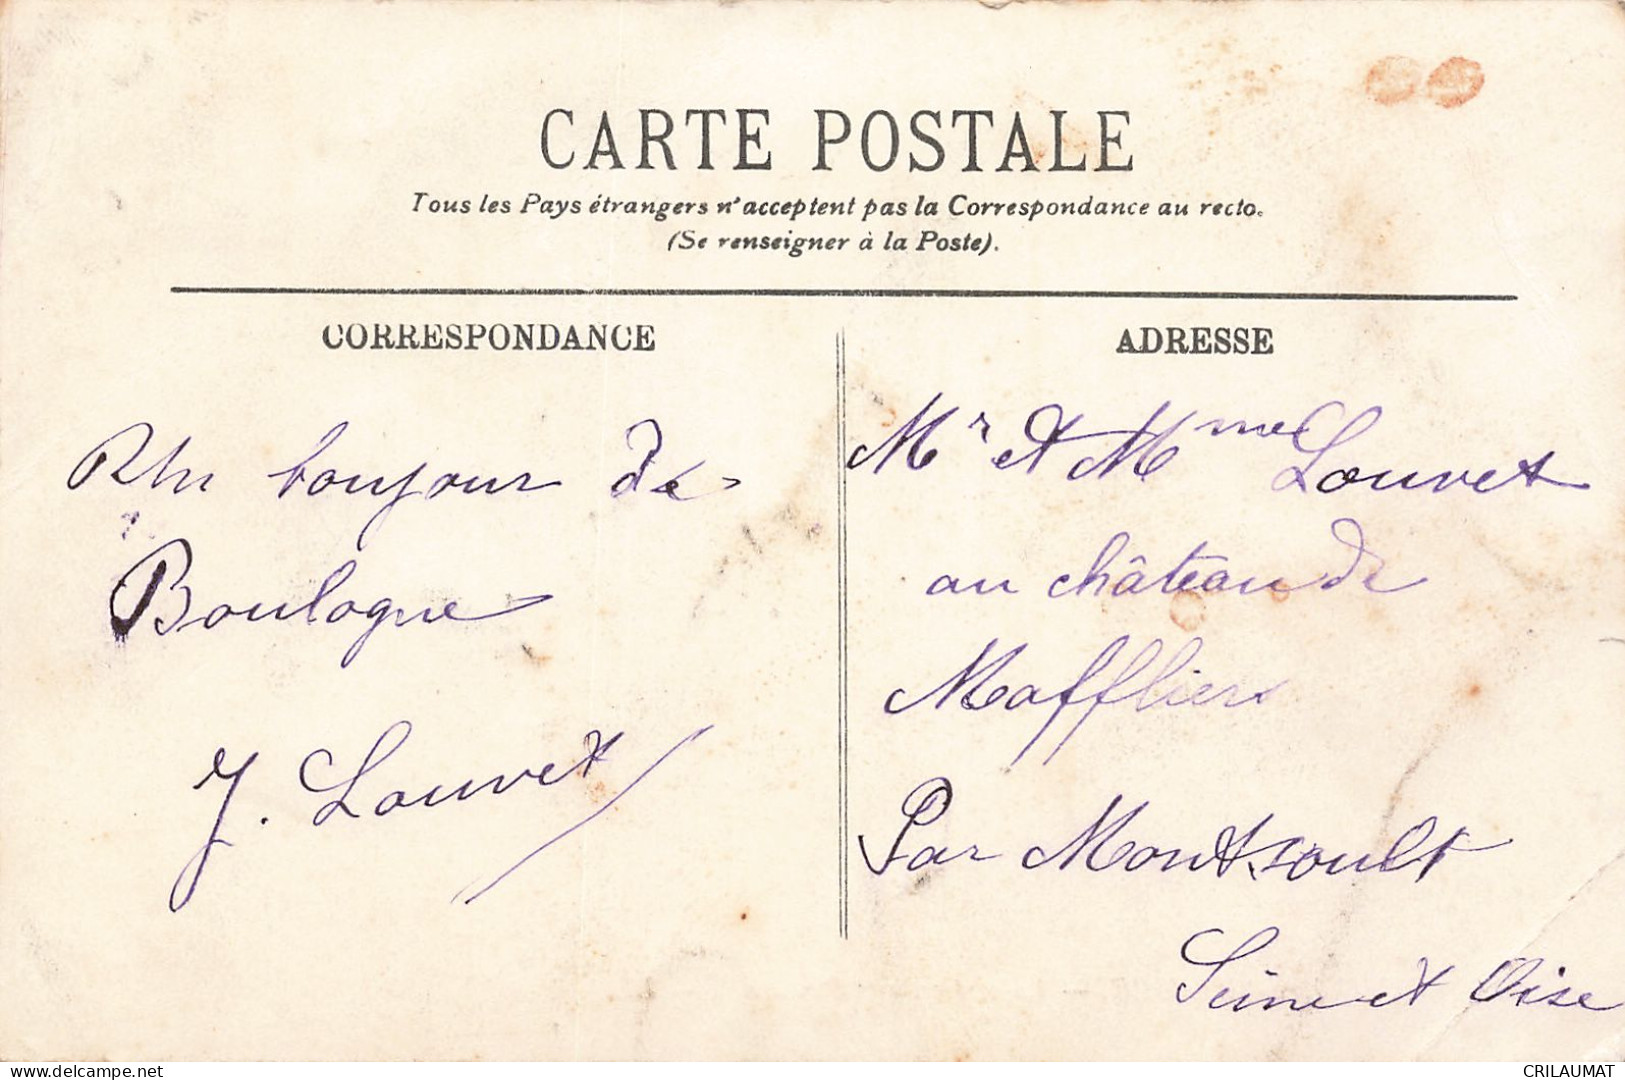 CARTE POSTALE
Tous les Pays étrangers n'acceptent pas la Correspondance au recto.
(Se renseigner à la Poste).
CORRESPONDANCE
bonjour de
Boulogne
J. Louvet
ADRESSE
Mr et Mme Louvet
au château de
Maffliers
Par Montsoult
Seine et Oise
www.delcampe.net
CRILAUMAT